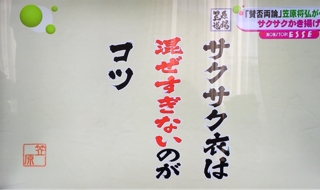 「賛否両論」笠原将弘が
サクサクかき揚げ
ESSE
笠原
サクサク衣は
混ぜすぎないのが
コツ
笠原